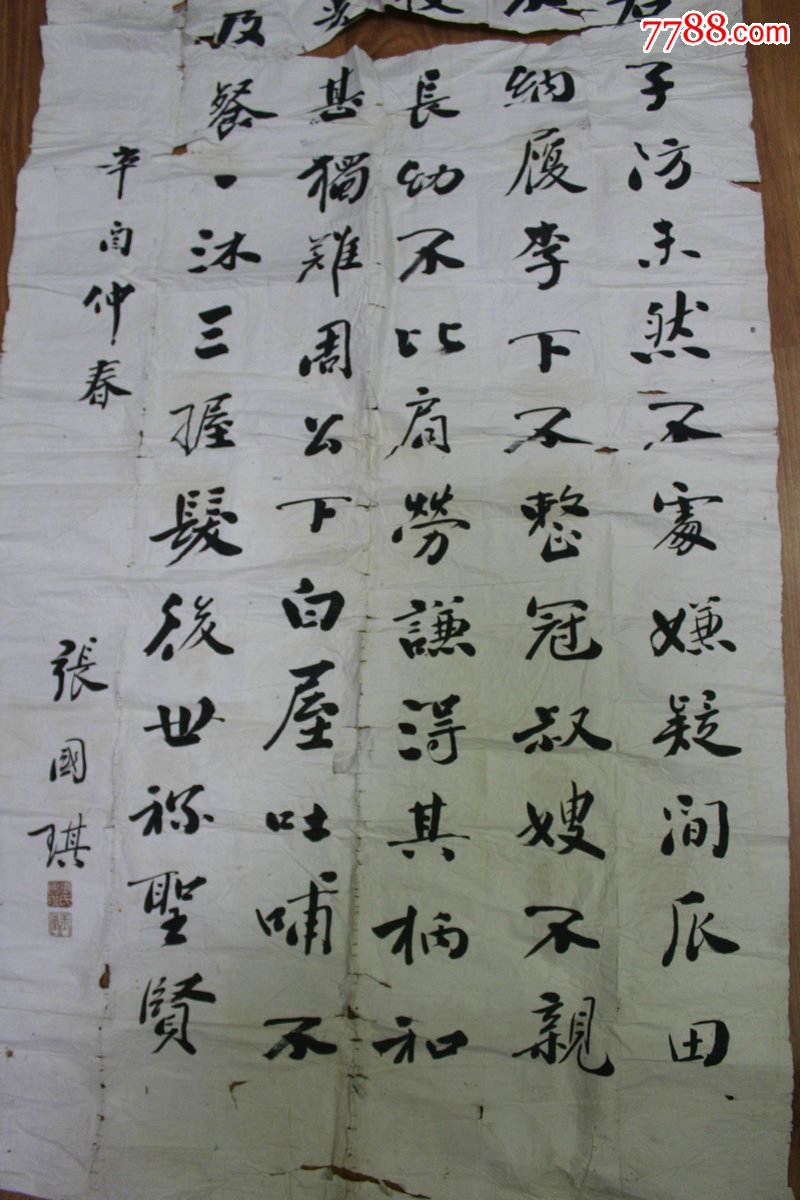 7788.com
子防未然不處嫌疑間瓜田
納履李下不整冠叔嫂不親
長幼不比肩勞謙得其柄和
甚獨難周公下白屋吐哺不
及餐一沐三握髮後世称聖賢
辛酉仲春
張國琪